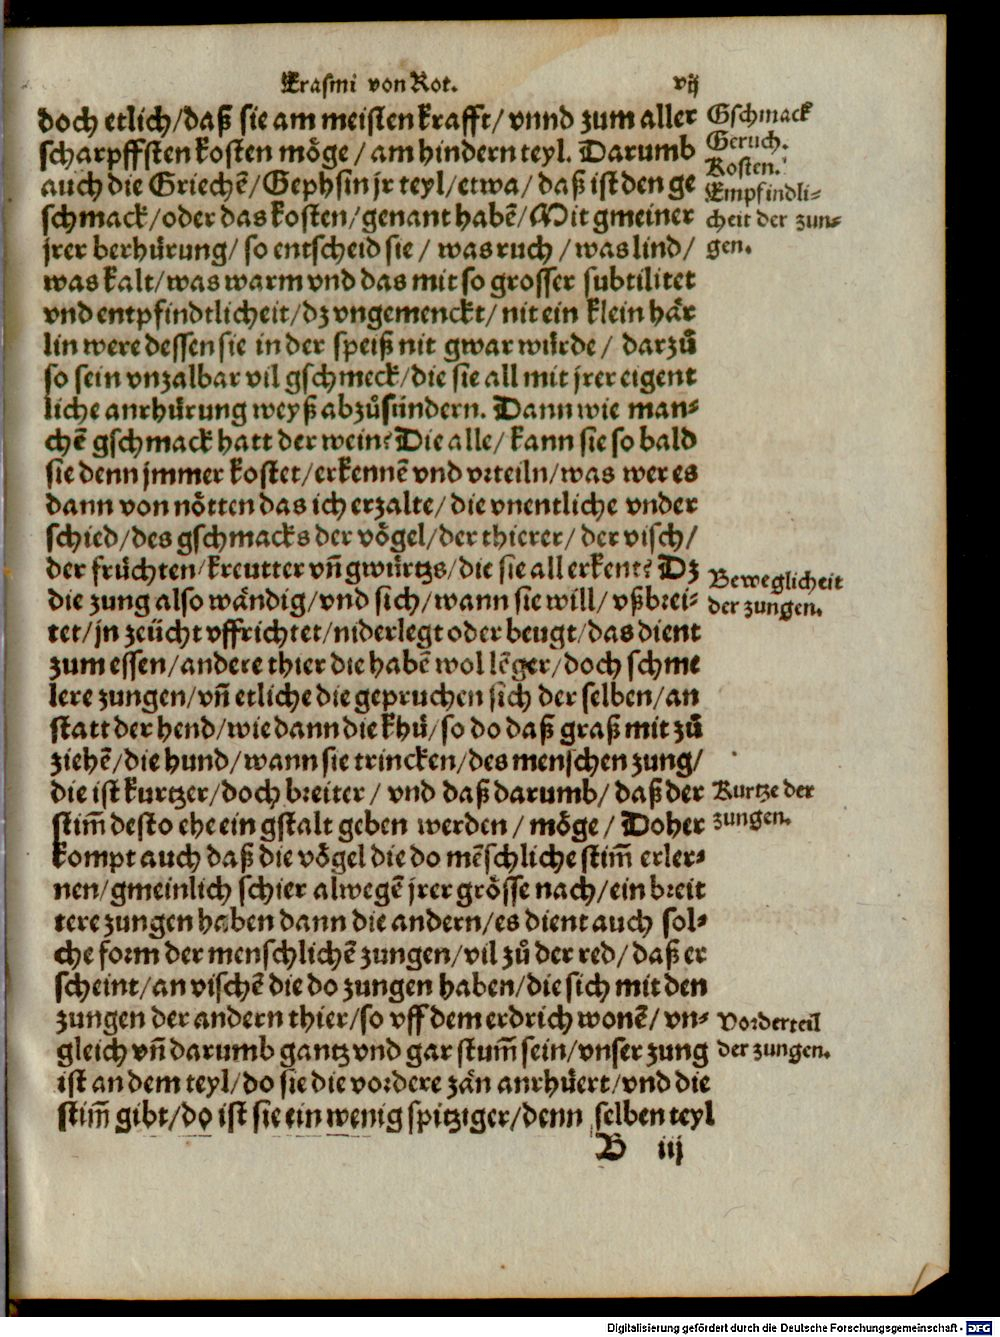 Erasmi von Rot. vij
doch etlich/daß sie am meisten krafft/ vnnd zum aller
scharpffsten kosten möge / am hindern teyl. Darumb
auch die Griechẽ/Gephsin jr teyl/etwa/ daß ist den ge
schmack/oder das kosten/genant habẽ/Mit gmeiner
jrer berhürung/ so entscheid sie / was ruch / was lind/
was kalt/was warm vnd das mit so grosser subtilitet
vnd entpfindtlicheit/dz vngemenckt/ nit ein klein här
lin were dessen sie in der speiß nit gwar würde / darzů
so sein vnzalbar vil gschmeck/die sie all mit jrer eigent
liche anrhürung weyß abzůsündern. Dann wie man⸗
chẽ gschmack hatt der wein? Die alle/ kann sie so bald
sie denn jmmer kostet/erkennẽ vnd vrteiln/was wer es
dann von nötten das ich erzalte/die vnentliche vnder
schied/des gschmacks der vögel/der thierer/ der visch/
der früchten/kreutter vñ gwürtzs/die sie all erkent? Dz
die zung also wändig/vnd sich/wann sie will/ vßbrei⸗
tet/jn zeücht vffrichtet/niderlegt oder beugt/das dient
zum essen/andere thier die habẽ wol lẽger/doch schme
lere zungen/vñ etliche die gepruchen sich der selben/an
statt der hend/wie dann die khů/so do daß graß mit zů
ziehẽ/die hund/wann sie trincken/des menschen zung/
die ist kurtzer/doch breiter / vnd daß darumb/ daß der
stim̃ desto ehe ein gstalt geben werden / möge / Doher
kompt auch daß die vögel die do mẽschliche stim̃ erler⸗
nen/gmeinlich schier alwegẽ jrer grösse nach/ein breit
tere zungen haben dann die andern/es dient auch sol⸗
che form der menschlichẽ zungen/vil zů der red/daß er
scheint/an vischẽ die do zungen haben/die sich mit den
zungen der andern thier/so vff dem erdrich wonẽ/ vn⸗
gleich vñ darumb gantz vnd gar stum̃ sein/vnser zung
ist an dem teyl/do sie die vordere zän anrhüert/vnd die
stim̃ gibt/do ist sie ein wenig spitziger/denn selben teyl
B iij
Gschmack
Geruch.
Kosten.
Empfindli⸗
cheit der zun⸗
gen.
Beweglicheit
der zungen.
Kurtze der
zungen.
Vorderteil
der zungen.
Digitalisierung gefördert durch die Deutsche Forschungsgemeinschaft - DFG